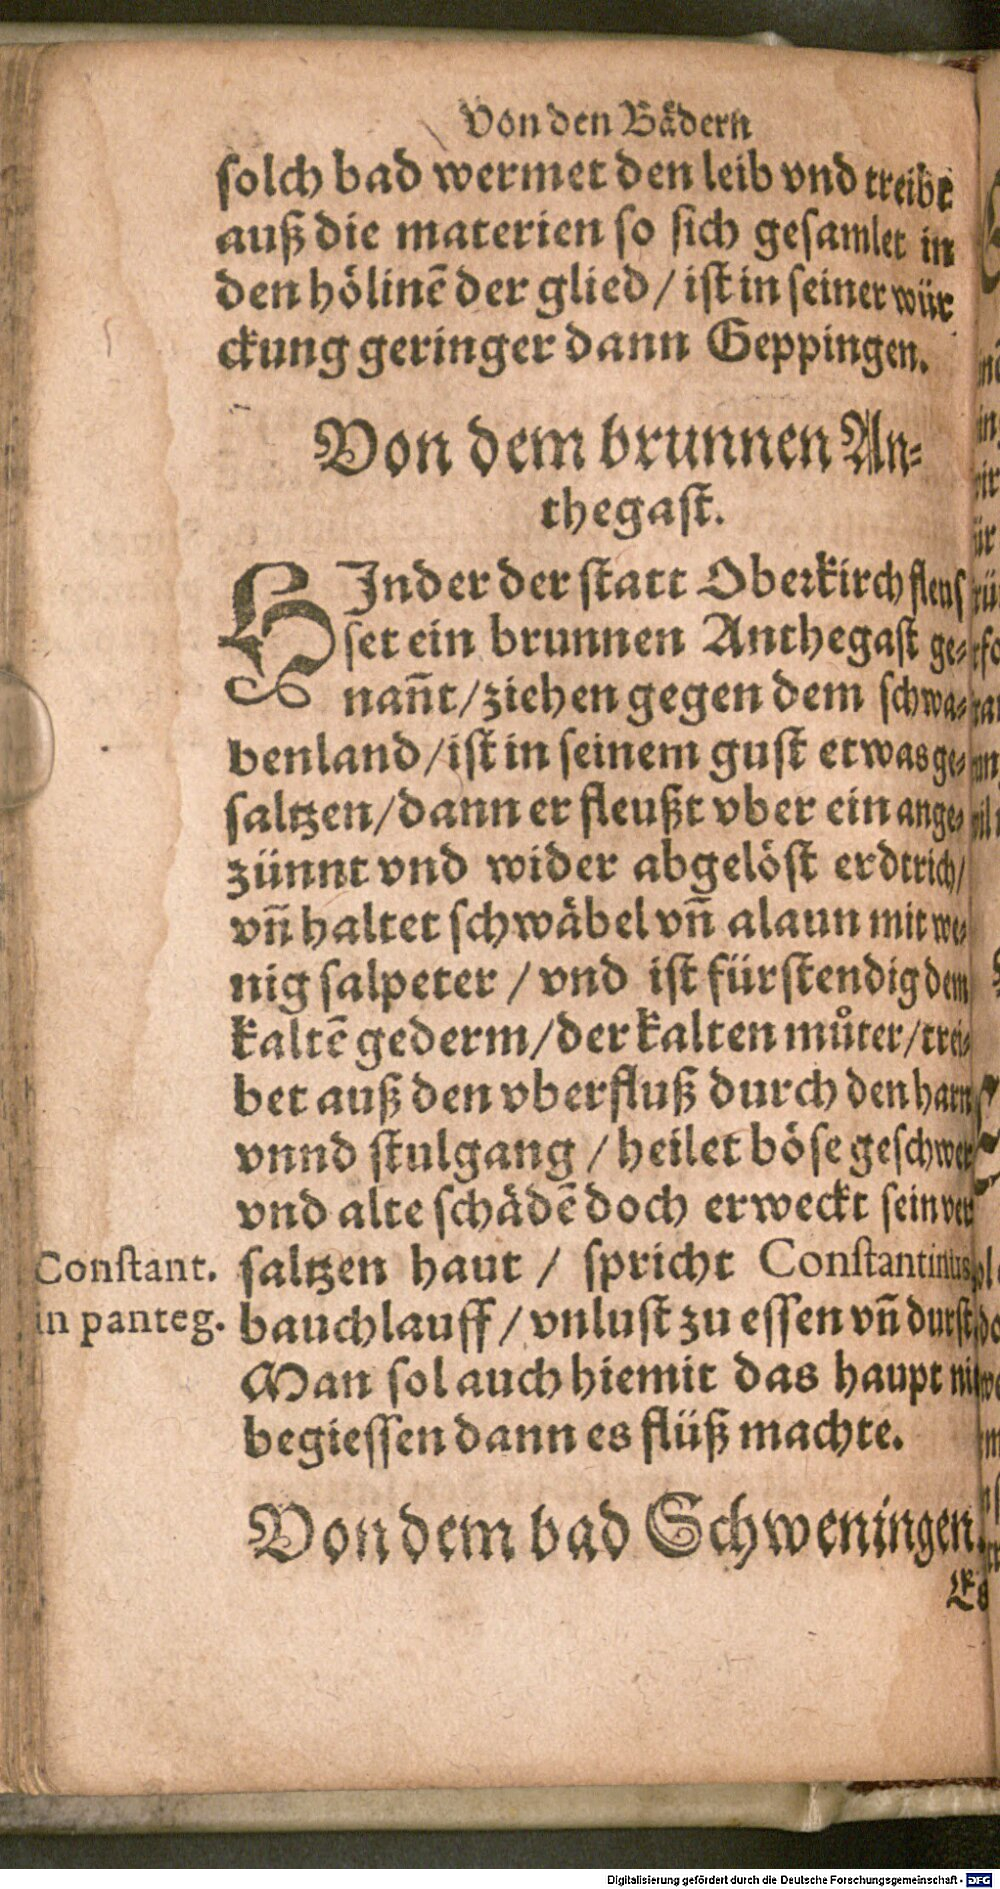 Von den Bådern
solch bad wermet den leib vnd treibt
auß die materien so sich gesamlet in
den hölinē der glied / ist in seiner wür
ckung geringer dann Geppingen.
Von dem brunnen An-
thegast.
HInder der statt Oberkirch fleus
set ein brunnen Anthegast ge-
nañt / ziehen gegen dem schwa-
benland / ist in seinem gust etwas ge-
saltzen / dann er fleußt vber ein ange-
zünnt vnd wider abgelöst erdtrich /
vñ haltet schwäbel vñ alaun mit we-
nig salpeter / vnd ist fürstendig dem
kaltē gederm / der kalten můter / trei-
bet auß den vberfluß durch den harn
vnnd stulgang / heilet böse geschwer
vnd alte schädē doch erweckt sein ver
Constant. saltzen haut / spricht Constantinus
in panteg. bauchlauff / vnlust zu essen vñ durst
Man sol auch hiemit das haupt
begiessen dann es flüß machte.
Von dem bad Schweningen.
Es
Digitalisierung gefördert durch die Deutsche Forschungsgemeinschaft - DFG